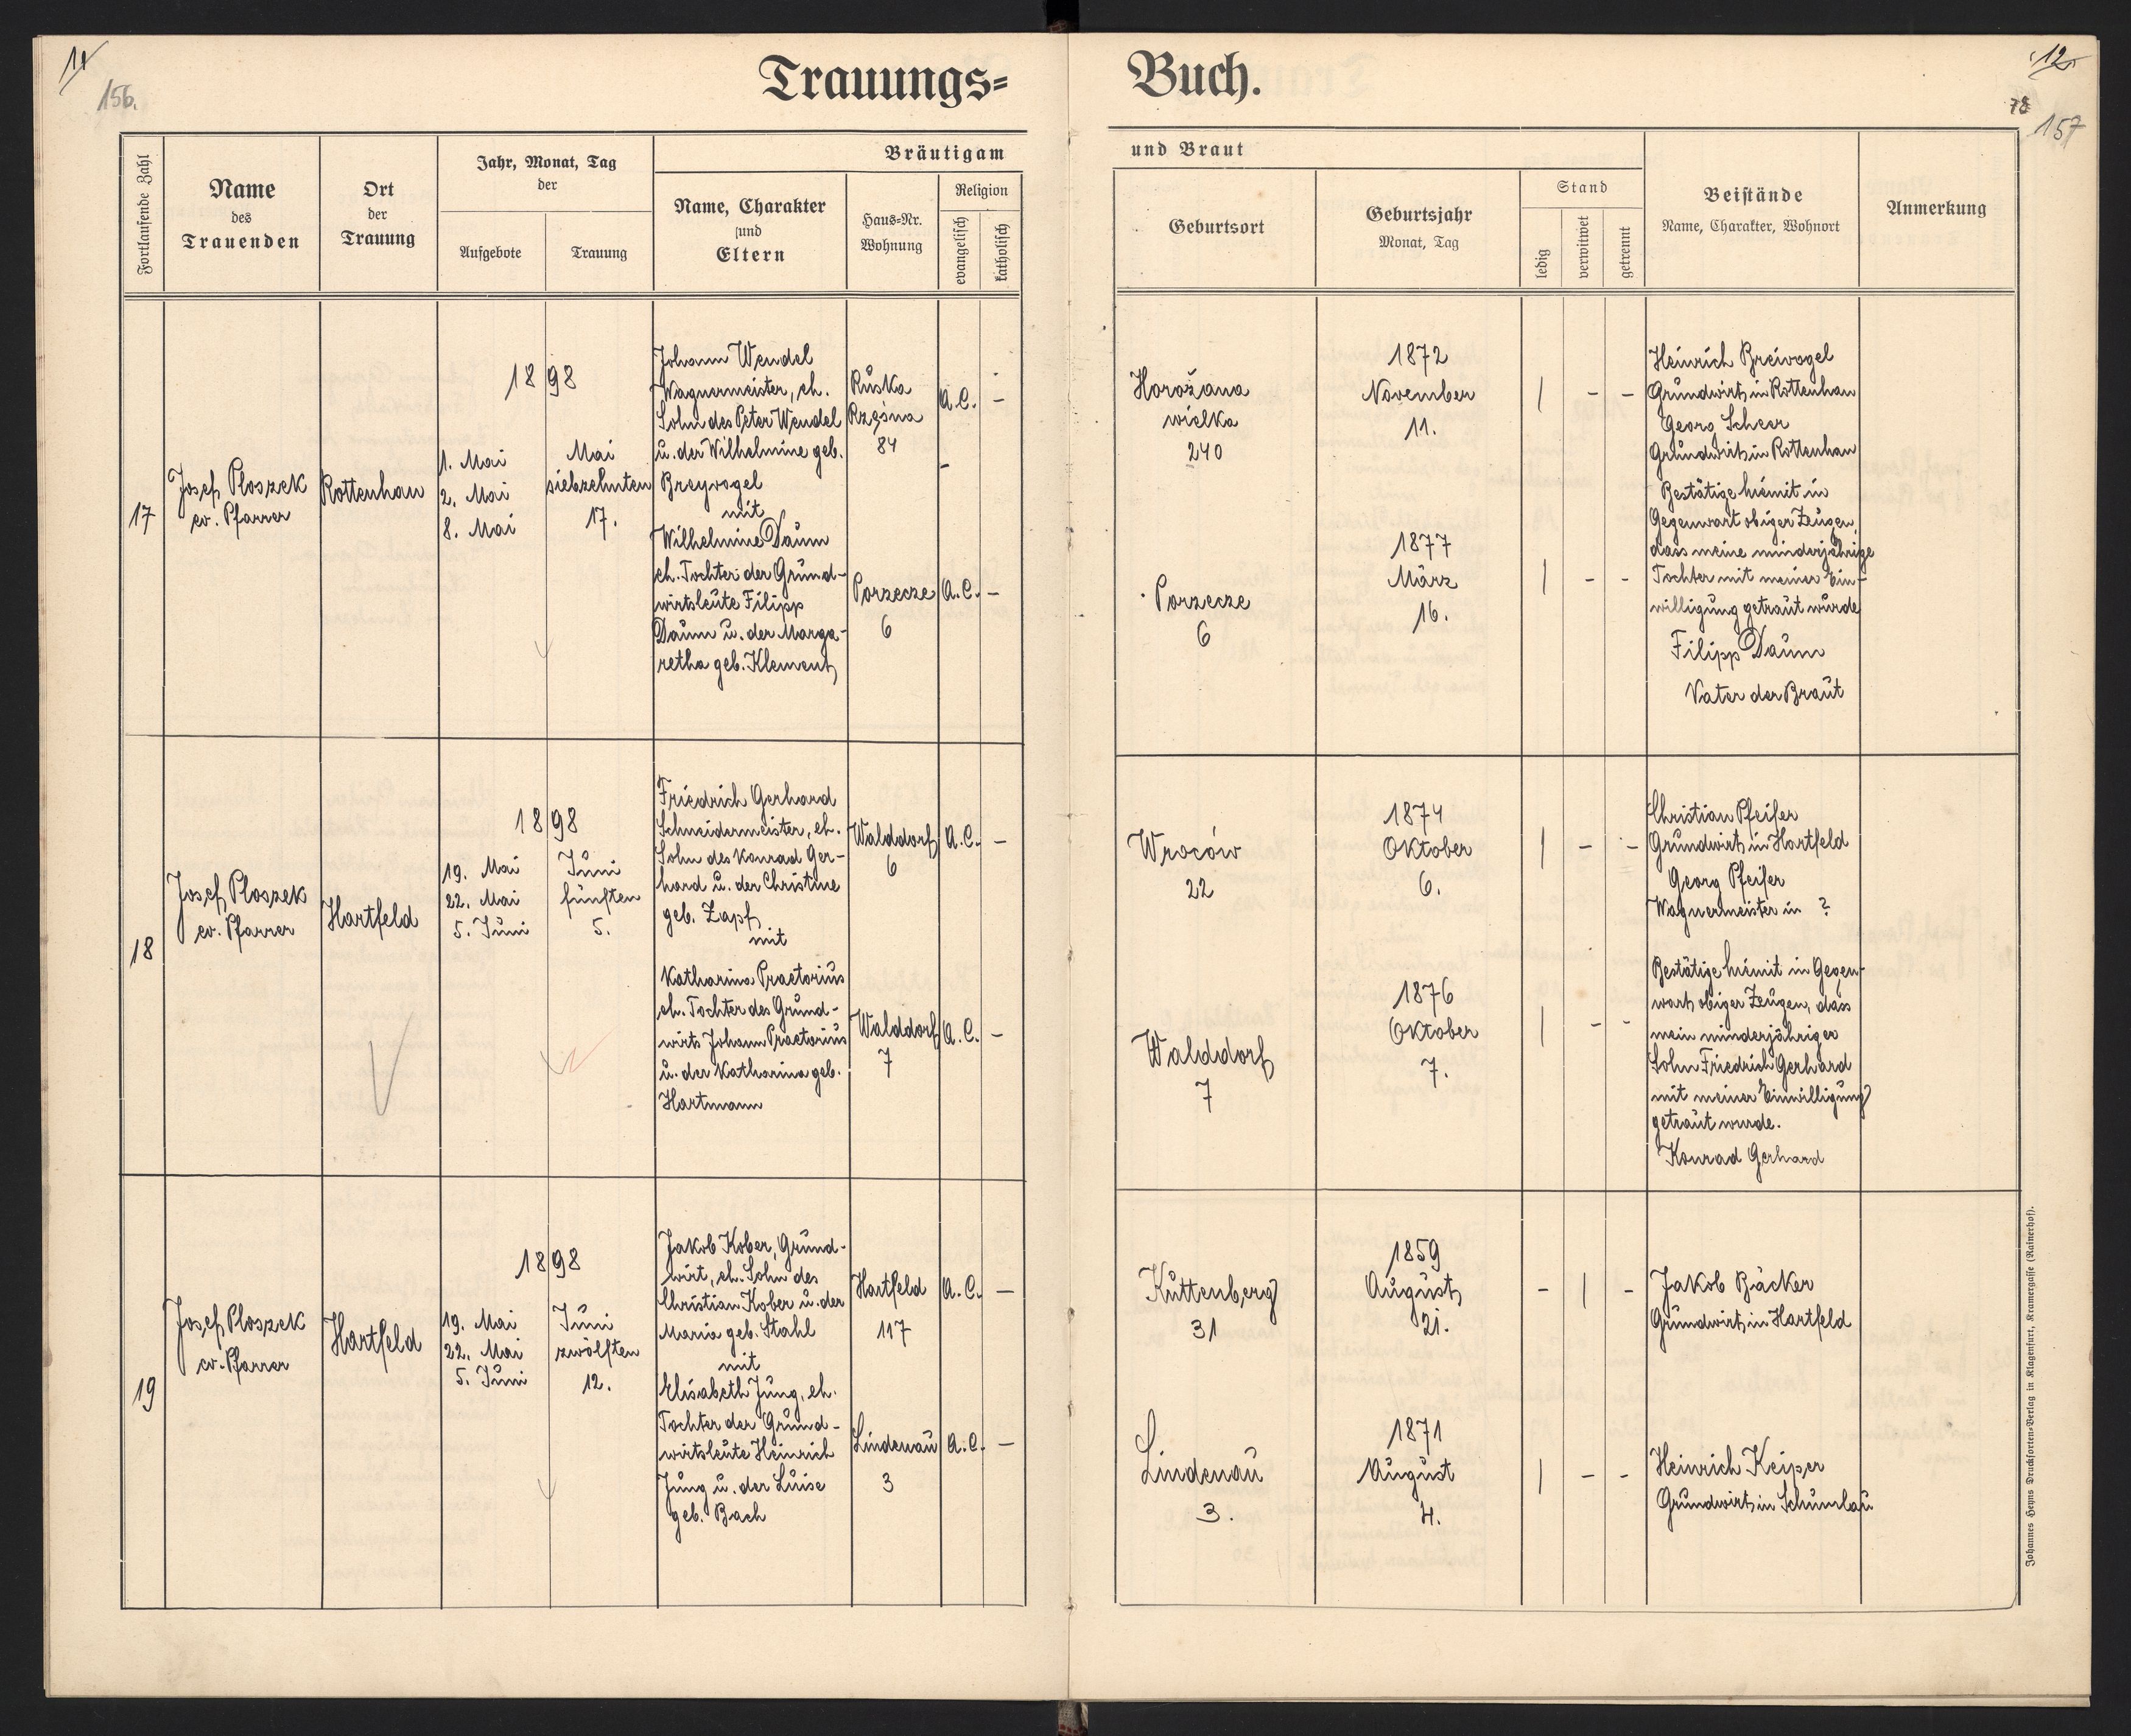 11
156.
Trauungs=
Buch.
12.
78
157
Fortlaufende Zahl
Name
des
Trauenden
Ort
der
Trauung
Jahr, Monat, Tag
der
Aufgebote
Trauung
Bräutigam
Name, Charakter
und
Eltern
Haus=Nr.
Wohnung
Religion
evangelisch
katholisch
und Braut
Geburtsort
Geburtsjahr
Monat, Tag
Stand
ledig
verwitwet
getrennt
Beistände
Name, Charakter, Wohnort
Anmerkung
17
Josef Ploszek
ev. Pfarrer
Rottenhan
1898
1. Mai
2. Mai
8. Mai
Mai
siebzehnten
17.
Johann Wendel
Wagnermeister, eh.
Sohn des Peter Wendel
u. der Wilhelmine geb.
Breyvogel
mit
Wilhelmine Daum
eh. Tochter der Grund-
wirtsleute Filipp
Daum u. der Marga-
retha geb. Klement
Ruska
Rzęsna
84
A.C. –
Porzecze
6
A.C. –
Horožana
wielka
240
1872
November
11.
| – –
Porzecze
6
1877
März
16.
| – –
Heinrich Breivogel
Grundwirt in Rottenhan
Georg Scheer
Grundwirt in Rottenhan
Bestätige hiemit in
Gegenwart obiger Zeugen,
dass meine minderjährige
Tochter mit meiner Ein-
willigung getraut wurde
Filipp Daum
Vater der Braut
18
Josef Ploszek
ev. Pfarrer
Hartfeld
1898
19. Mai
22. Mai
5. Juni
Juni
fünften
5.
Friedrich Gerhard
Schneidermeister, eh.
Sohn des Konrad Ger-
hard u. der Christine
geb. Zapf
mit
Katharina Praetorius
eh. Tochter des Grund-
wirts Johann Praetorius
u. der Katharina geb.
Hartmann
Walddorf
6
A.C. –
Walddorf
7
A.C. –
Wroców
22
1874
Oktober
6.
| – –
Walddorf
7
1876
Oktober
7.
| – –
Christian Pfeifer
Grundwirt in Hartfeld
Georg Pfeifer
Wagnermeister in ?
Bestätige hiemit in Gegen-
wart obiger Zeugen, dass
mein minderjähriger
Sohn Friedrich Gerhard
mit meiner Einwilligung
getraut wurde.
Konrad Gerhard
19
Josef Ploszek
ev. Pfarrer
Hartfeld
1898
19. Mai
22. Mai
5. Juni
Juni
zwölften
12.
Jakob Kober, Grund-
wirt, eh. Sohn des
Christian Kober u. der
Maria geb. Stahl
mit
Elisabeth Jung, eh.
Tochter der Grund-
wirtsleute Heinrich
Jung u. der Luise
geb. Bach
Hartfeld
117
A.C. –
Lindenau
3
A.C. –
Kuttenberg
31
1859
August
21.
– | –
Lindenau
3.
1871
August
4.
| – –
Jakob Bäcker
Grundwirt in Hartfeld
Heinrich Keiper
Grundwirt in Schumlau
Johannes Heyns Druckforten=Verlag in Klagenfurt, Kramergasse (Rainerhof).